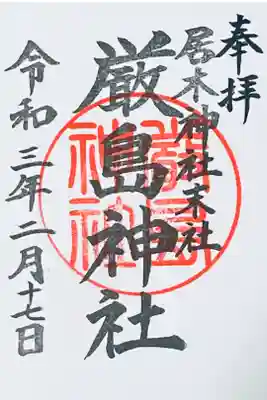 奉拝
居木神社末社
厳島神社
令和三年二月十七日
厳島神社